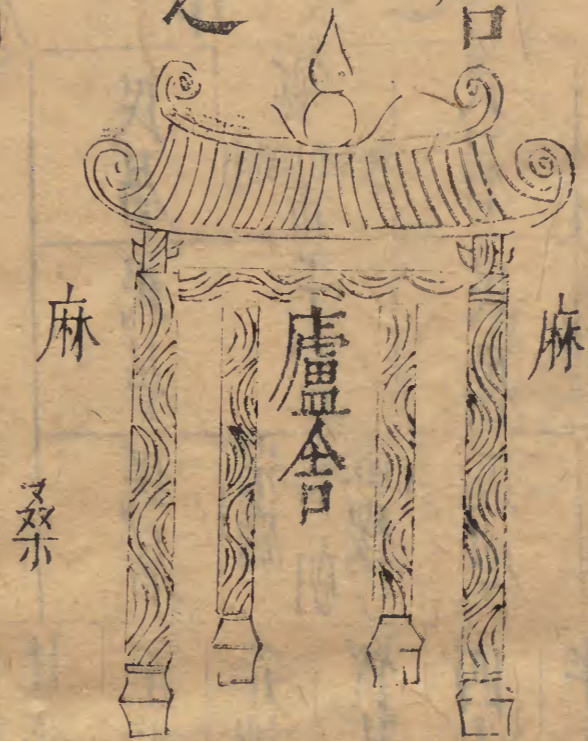 麻
廬舍
麻
桑